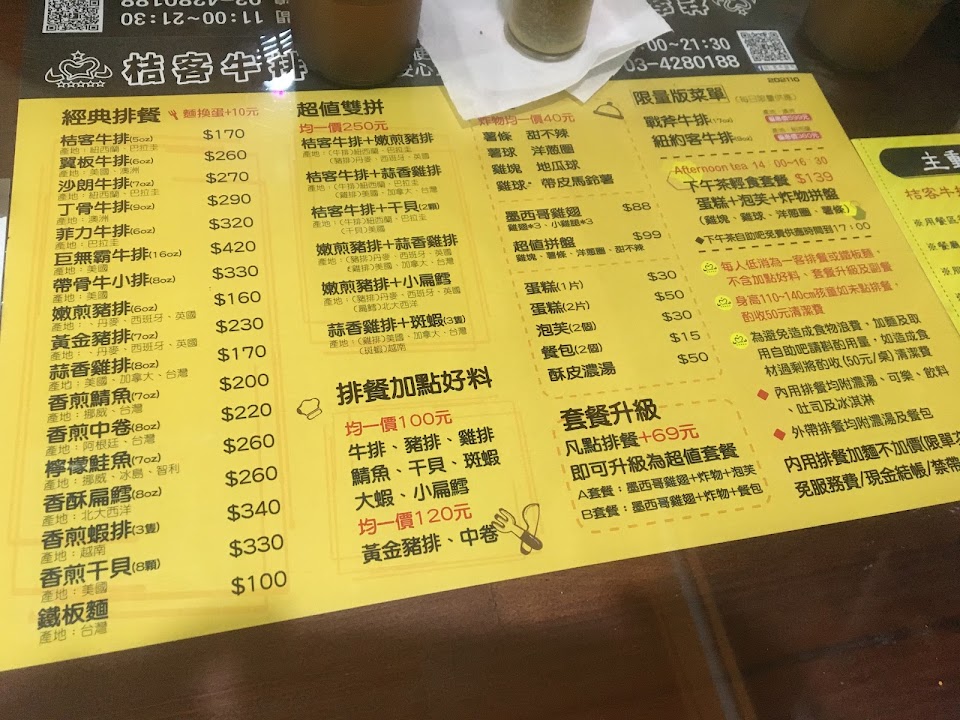 03-4280188
11:00~21:30
桔客牛排
00~21:30
03-4280188
202110
經典排餐 麵換蛋+10元
桔客牛排(5oz) $170
產地：紐西蘭、巴拉圭
翼板牛排(6oz) $260
產地：美國、澳洲
沙朗牛排(7oz) $270
產地：紐西蘭、巴拉圭
丁骨牛排(9oz) $290
產地：澳洲
菲力牛排(6oz) $320
產地：巴拉圭
巨無霸牛排(16oz) $420
產地：美國
帶骨牛小排(8oz) $330
產地：美國
嫩煎豬排(6oz) $160
產地：、丹麥、西班牙、英國
黃金豬排(7oz) $230
產地：、丹麥、西班牙、英國
蒜香雞排(8oz) $170
產地：美國、加拿大、台灣
香煎鯖魚(7oz) $200
產地：挪威、台灣
香煎中卷(8oz) $220
產地：阿根廷、台灣
檸檬鮭魚(7oz) $260
產地：挪威、冰島、智利
香酥扁鱈(8oz) $260
產地：北大西洋
香煎蝦排(3隻) $340
產地：越南
香煎干貝(8顆) $330
產地：美國
鐵板麵 $100
產地：台灣
超值雙拼
均一價250元
桔客牛排+嫩煎豬排
產地：(牛排)紐西蘭、巴拉圭
(豬排)丹麥、西班牙、英國
桔客牛排+蒜香雞排
產地：(牛排)紐西蘭、巴拉圭
(雞排)美國、加拿大、台灣
桔客牛排+干貝(2顆)
產地：(牛排)紐西蘭、巴拉圭
(干貝)美國
嫩煎豬排+蒜香雞排
產地：(豬排)丹麥、西班牙、英國
(雞排)美國、加拿大、台灣
嫩煎豬排+小扁鱈
產地：(豬排)丹麥、西班牙、英國
(扁鱈)北大西洋
蒜香雞排+斑蝦(3隻)
產地：(雞排)美國、加拿大、台灣
(斑蝦)越南
排餐加點好料
均一價100元
牛排、豬排、雞排
鯖魚、干貝、斑蝦
大蝦、小扁鱈
均一價120元
黃金豬排、中卷
炸物均一價40元
薯條 甜不辣
薯球 洋蔥圈
雞塊 地瓜球
雞球 帶皮馬鈴薯
墨西哥雞翅 $88
雞翅*3、小雞腿*3
超值拼盤 $99
雞塊、薯條、洋蔥圈、甜不辣
蛋糕(1片) $30
蛋糕(2片) $50
泡芙(2個) $30
餐包(2個) $15
酥皮濃湯 $50
套餐升級
凡點排餐+69元
即可升級為超值套餐
A套餐：墨西哥雞翅+炸物+泡芙
B套餐：墨西哥雞翅+炸物+餐包
限量版菜單
戰斧牛排(17oz)
紐約客牛排
Afternoon tea 14：00~16：30
下午茶輕食套餐 $139
蛋糕+泡芙+炸物拼盤
(雞塊、雞球、洋蔥圈、薯條)
◆下午茶自助吧免費供應時間到17：00
每人低消為一客排餐或鐵板麵
不含加點好料、套餐升級及副餐
身高110~140cm孩童如未點排餐，
酌收50元清潔費
為避免造成食物浪費，加麵及取
用自助吧請斟酌用量，如造成食
材過剩將酌收(50元/桌)清潔費
◆ 內用排餐均附濃湯、可樂、飲料
、吐司及冰淇淋
◆ 外帶排餐均附濃湯及餐包
內用排餐加麵不加價(限單次
免服務費/現金結帳/禁帶
主動
桔客牛
※用餐